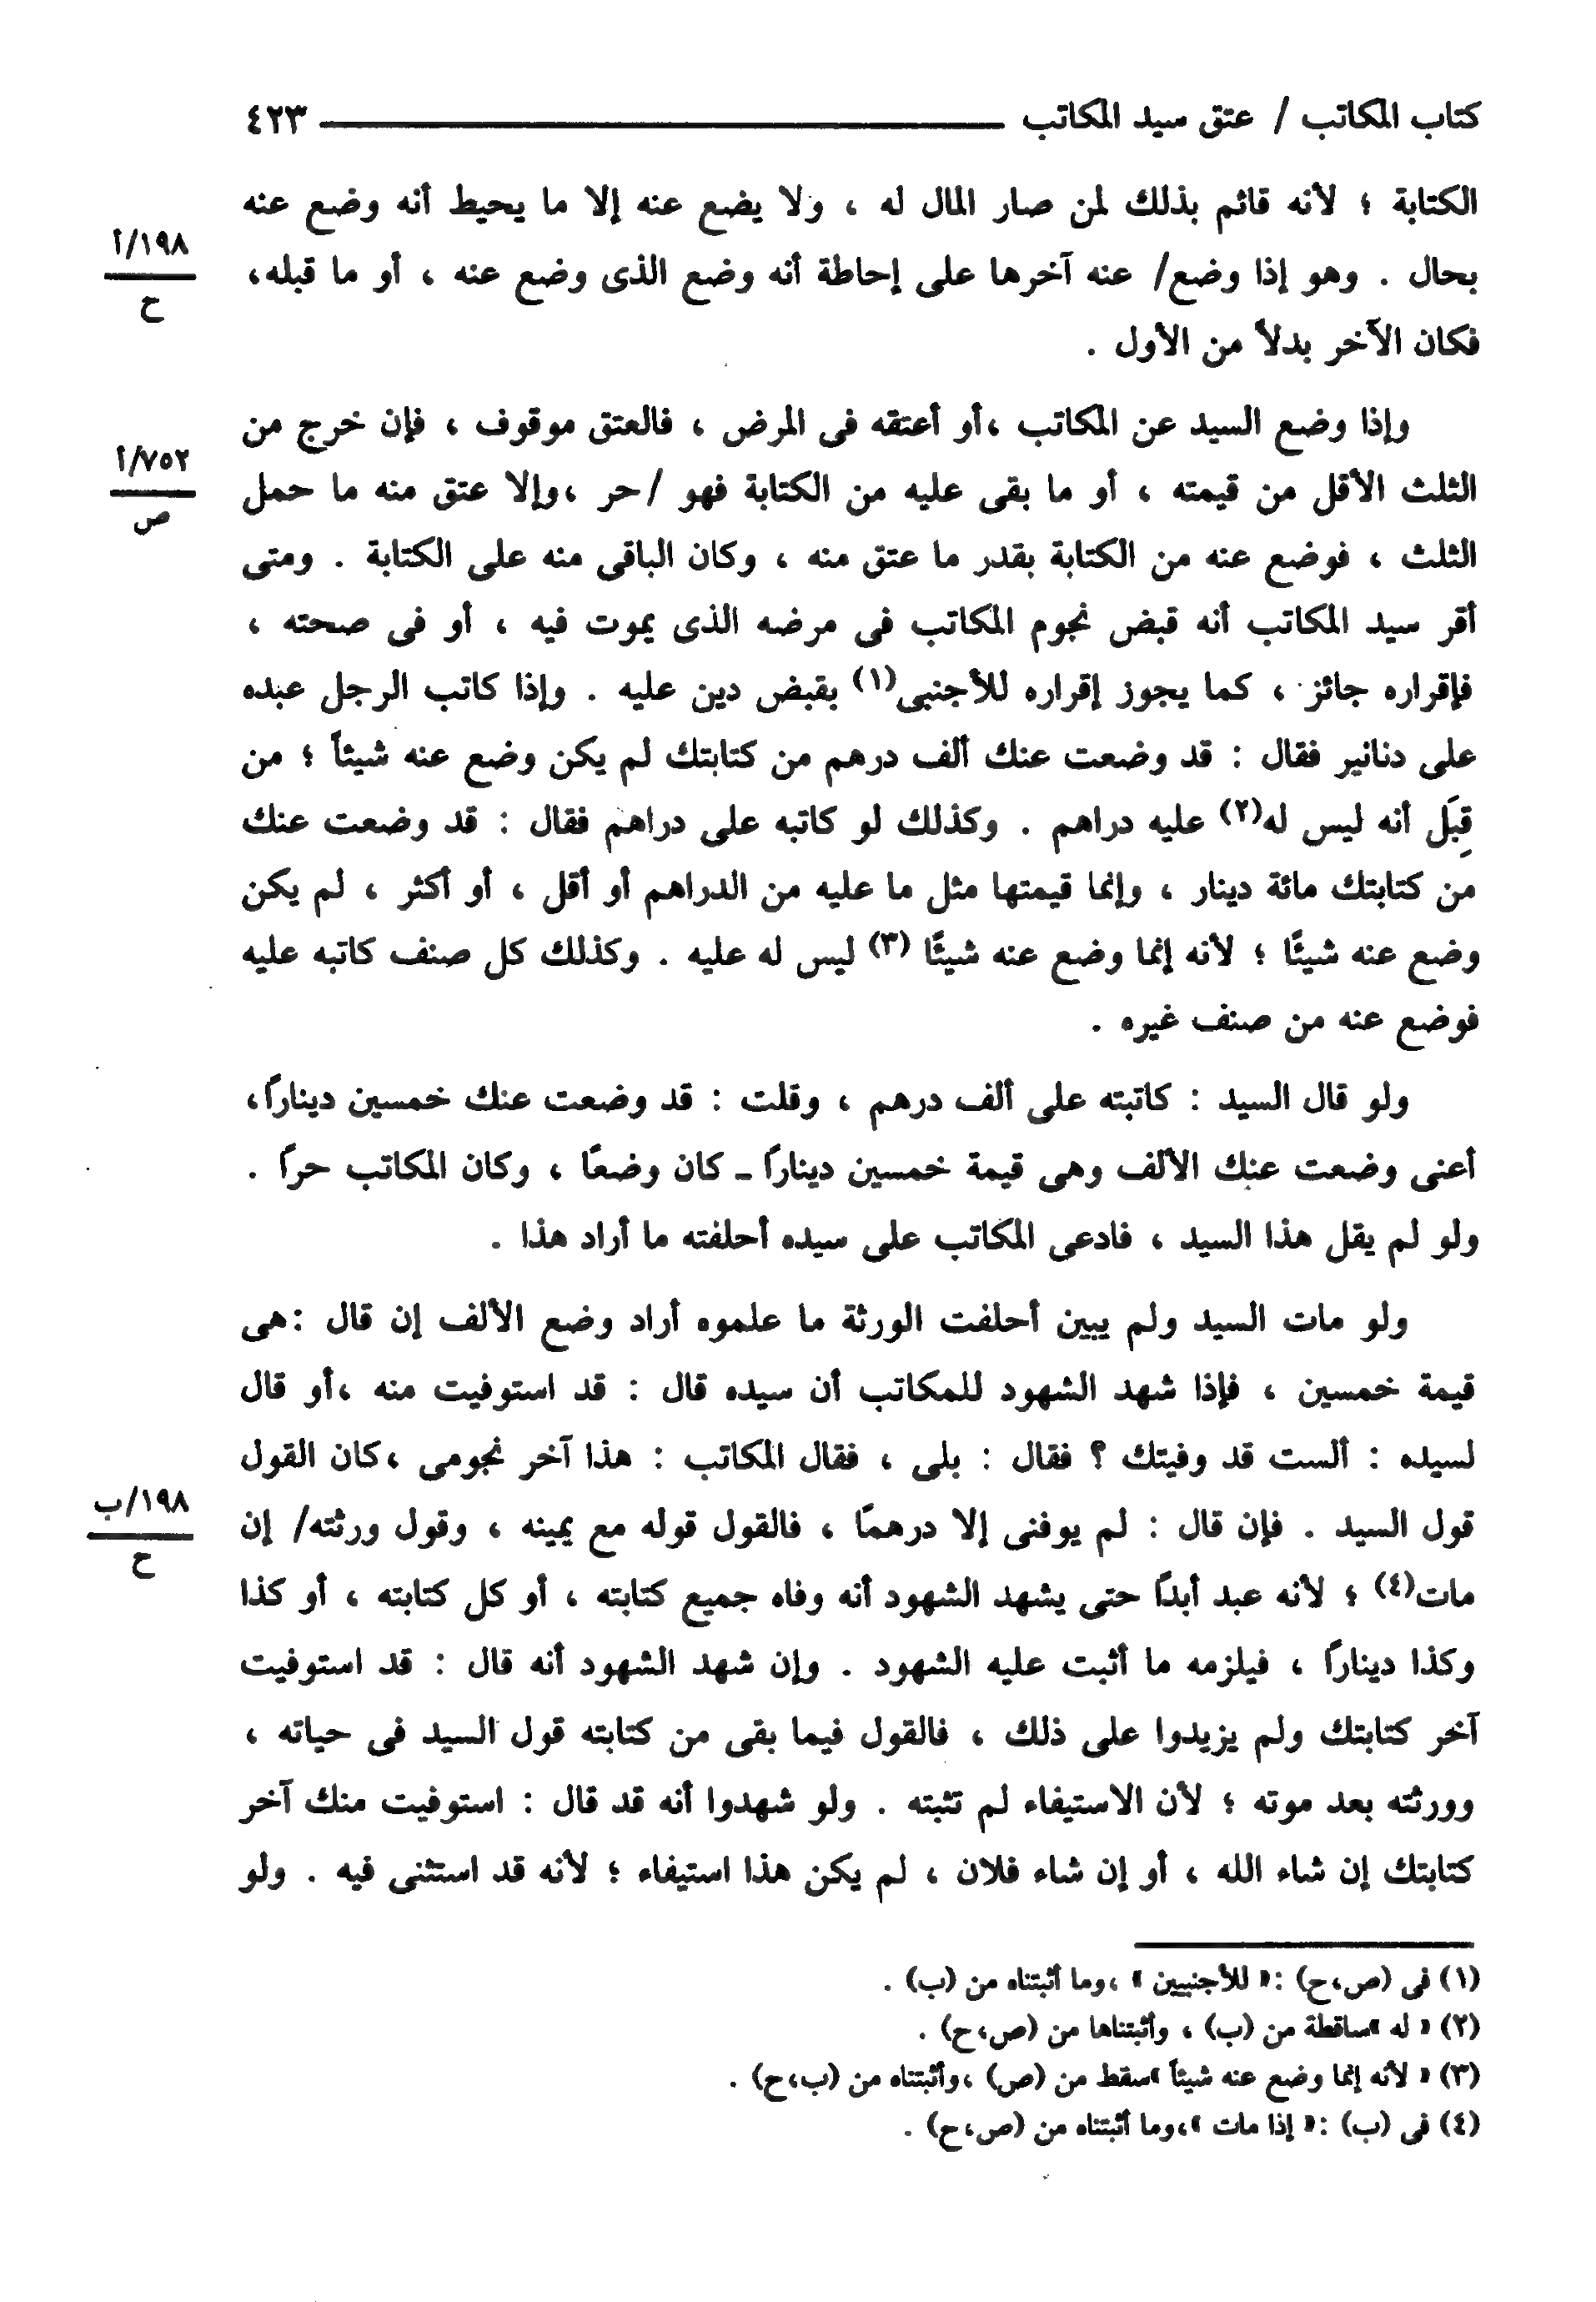 كتاب المكاتب / عتق سيد المكاتب ــــــــــــ ٤٢٣
الكتابة ؛ لأنه قائم بذلك لمن صار المال له ، ولا يضع عنه إلا ما يحيط أنه وضع عنه
١٩٨/أ
ح
بحال . وهو إذا وضع/ عنه آخرها على إحاطة أنه وضع الذى وضع عنه ، أو ما قبله،
فكان الآخر بدلاً من الأول .
وإذا وضع السيد عن المكاتب ،أو أعتقه فى المرض ، فالعتق موقوف ، فإن خرج من
٧٥٢/أ
ص
الثلث الأقل من قيمته ، أو ما بقى عليه من الكتابة فهو /حر ،وإلا عتق منه ما حمل
الثلث ، فوضع عنه من الكتابة بقدر ما عتق منه ، وكان الباقى منه على الكتابة . ومتى
أقر سيد المكاتب أنه قبض نجوم المكاتب فى مرضه الذى يموت فيه ، أو فى صحته ،
فإقراره جائز ، كما يجوز إقراره للأجنبى(١) بقبض دين عليه . وإذا كاتب الرجل عبده
على دنانير فقال : قد وضعت عنك ألف درهم من كتابتك لم يكن وضع عنه شيئاً ؛ من
قِبَل أنه ليس له(٢) عليه دراهم . وكذلك لو كاتبه على دراهم فقال : قد وضعت عنك
من كتابتك مائة دينار ، وإنما قيمتها مثل ما عليه من الدراهم أو أقل ، أو أكثر ، لم يكن
وضع عنه شيئًا ؛ لأنه إنما وضع عنه شيئًا (٣) ليس له عليه . وكذلك كل صنف كاتبه عليه
فوضع عنه من صنف غيره .
ولو قال السيد : كاتبته على ألف درهم ، وقلت : قد وضعت عنك خمسين دينارًا،
أعنى وضعت عنك الألف وهى قيمة خمسين دينارًا ـ كان وضعًا ، وكان المكاتب حرًا .
ولو لم يقل هذا السيد ، فادعى المكاتب على سيده أحلفته ما أراد هذا .
ولو مات السيد ولم يبين أحلفت الورثة ما علموه أراد وضع الألف إن قال :هى
قيمة خمسين ، فإذا شهد الشهود للمكاتب أن سيده قال : قد استوفيت منه ،أو قال
لسيده : ألست قد وفيتك ؟ فقال : بلى ، فقال المكاتب : هذا آخر نجومى ،كان القول
١٩٨/ب
ح
قول السيد . فإن قال : لم يوفنى إلا درهمًا ، فالقول قوله مع يمينه ، وقول ورثته/ إن
مات(٤) ؛ لأنه عبد أبدًا حتى يشهد الشهود أنه وفاه جميع كتابته ، أو كل كتابته ، أو كذا
وكذا دينارًا ، فيلزمه ما أثبت عليه الشهود . وإن شهد الشهود أنه قال : قد استوفيت
آخر كتابتك ولم يزيدوا على ذلك ، فالقول فيما بقى من كتابته قول السيد فى حياته ،
وورثته بعد موته ؛ لأن الاستيفاء لم تثبته . ولو شهدوا أنه قد قال : استوفيت منك آخر
كتابتك إن شاء الله ، أو إن شاء فلان ، لم يكن هذا استيفاء ؛ لأنه قد استثنى فيه . ولو
(١) فى (ص،ح) :« للأجنبيين » ،وما أثبتناه من (ب) .
(٢) « له »ساقطة من (ب) ، وأثبتناها من (ص،ح) .
(٣) « لأنه إنما وضع عنه شيئاً »سقط من (ص) ،وأثبتناه من (ب،ح) .
(٤) فى (ب) :« إذا مات »،وما أثبتناه من (ص،ح) .